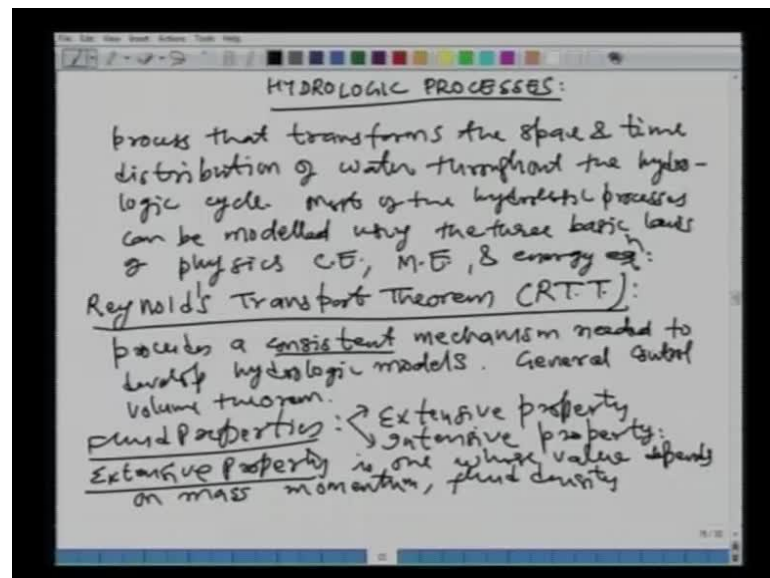 File Edit View Insert Actions Tools Help
HYDROLOGIC PROCESSES:
process that transforms the space & time
distribution of water throughout the hydro-
logic cycle. Most of the hydrologic processes
can be modelled using the three basic laws
of physics C.E., M.E., & energy eqn:
Reynold's Transport Theorem (R.T.T.):
provides a consistent mechanism needed to
develop hydrologic models. General Control
volume theorem.
Fluid Properties: Extensive property
Intensive property:
Extensive Property is one whose value depends
on mass momentum, fluid density